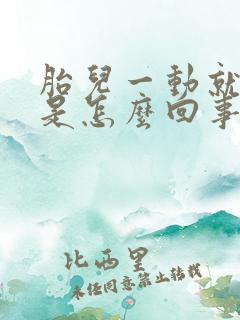 胎兒一動就
是怎麼回事
比西里
未經同意禁止轉載